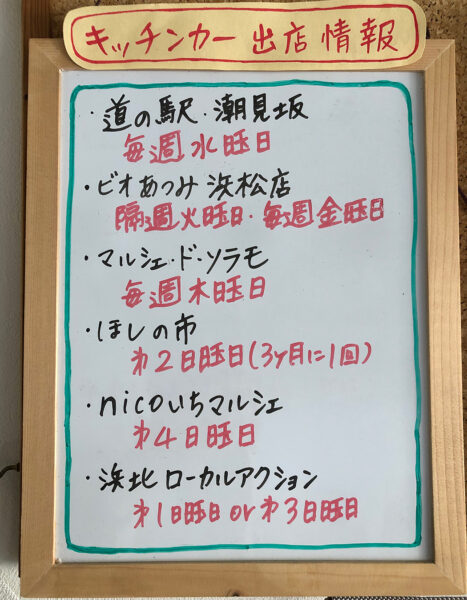 キッチンカー 出店情報
・道の駅・潮見坂
毎週水曜日
・ビオあつみ 浜松店
隔週火曜日・毎週金曜日
・マルシェ・ド・ソラモ
毎週木曜日
・ほしの市
第2日曜日(3ヶ月に1回)
・nicoいちマルシェ
第4日曜日
・浜北ローカルアクション
第1日曜日or第3日曜日